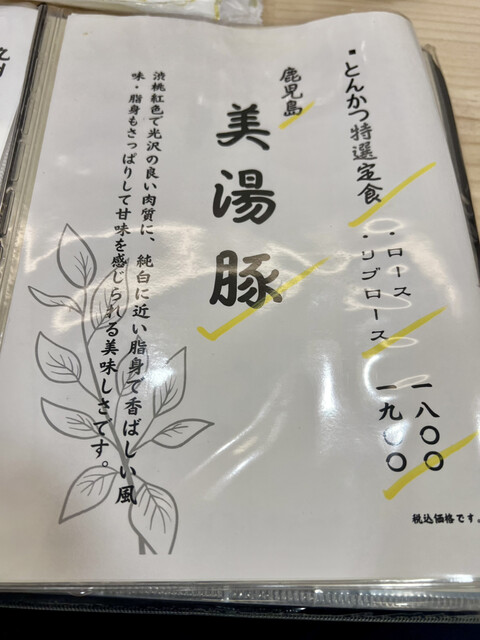 ■ とんかつ特選定食
・ロース 一八〇〇
・リブロース 一九〇〇
税込価格です。
鹿児島
美湯豚
渋桃紅色で光沢の良い肉質に、純白に近い脂身で香ばしい風
味・脂身もさっぱりして甘味を感じられる美味しさです。